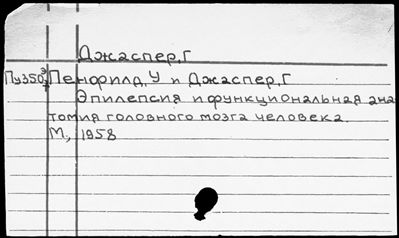 Джаспер, Г
Пу350³/₇ Пенфилд, У и Джаспер, Г
Эпилепсия и функциональная ана
томия головного мозга человека.
М., 1958